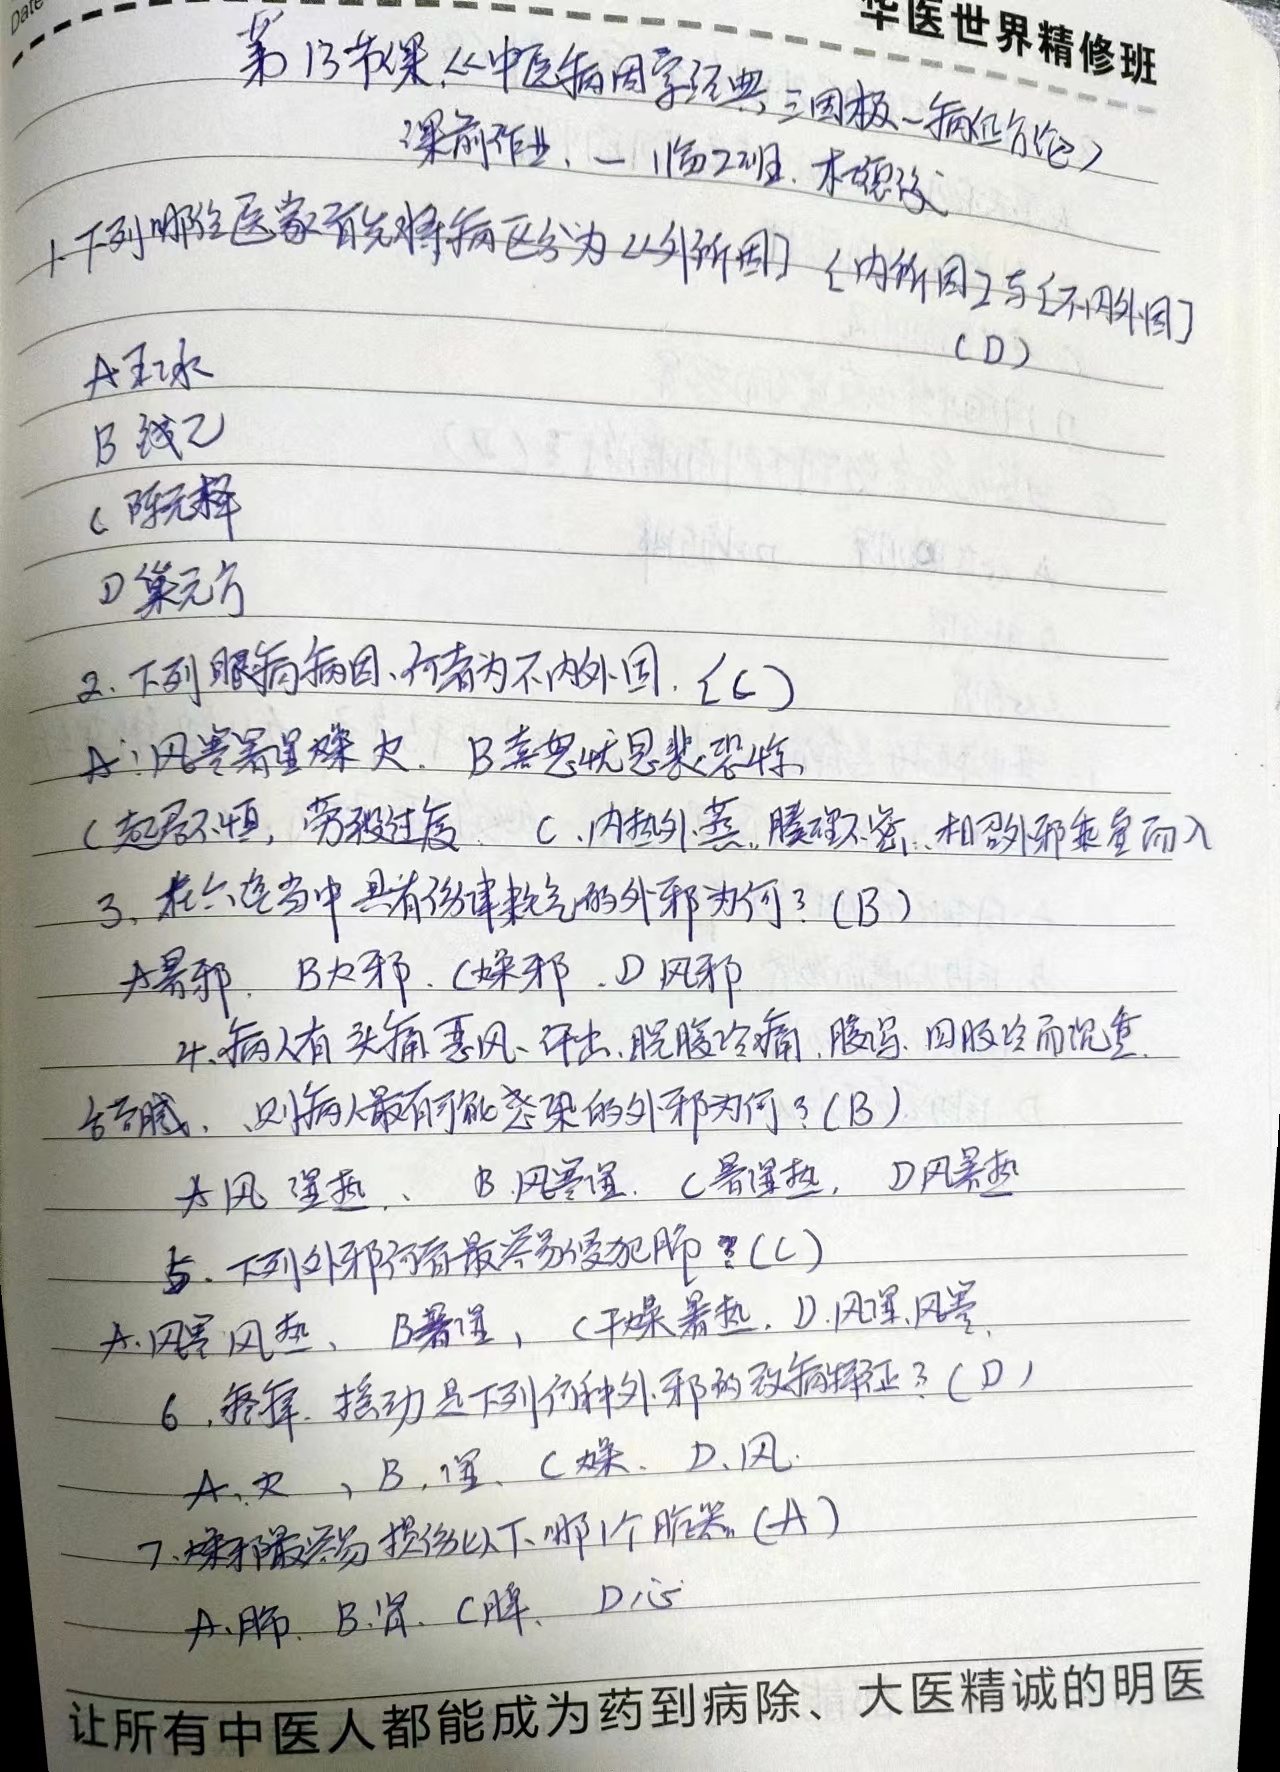 Date
华医世界精修班
第13节课《中医病因学经典三因极一病证方论》
课前作业、一临2班.
1.下列哪位医家首先将病区分为《外所因】【内所因】与【不内外因】
(D)
A王冰
B 钱乙
C 陈无择
D 巢元方
2.下列眼病病因、何者为不内外因.(C)
A:风寒暑湿燥火. B喜怒忧思悲恐惊,
C起居不恒,劳役过度. C.内热外蒸.腠理不密,相召外邪乘虚而入
3、在六淫当中具有伤津耗气的外邪为何?(B)
A暑邪. B火邪.C燥邪.D风邪
4.病人有头痛恶风、汗出,脘腹冷痛,腹泻、四肢冷而沉重.
舌苔腻、则病人最有可能感染的外邪为何?(B)
A风湿热、 B.风寒湿. C暑湿热, D风暑热
5.下列外邪何者最容易侵犯肺?(C)
A.风寒风热、 B暑湿, C干燥暑热.D.风湿.风寒.
6.摇动是下列何种外邪的致病特征?(D)
A.火、B.湿、C燥. D.风.
7.燥邪最容易损伤以下哪1个脏器(A)
A.肺.B.肾.C脾. D心
让所有中医人都能成为药到病除、大医精诚的明医